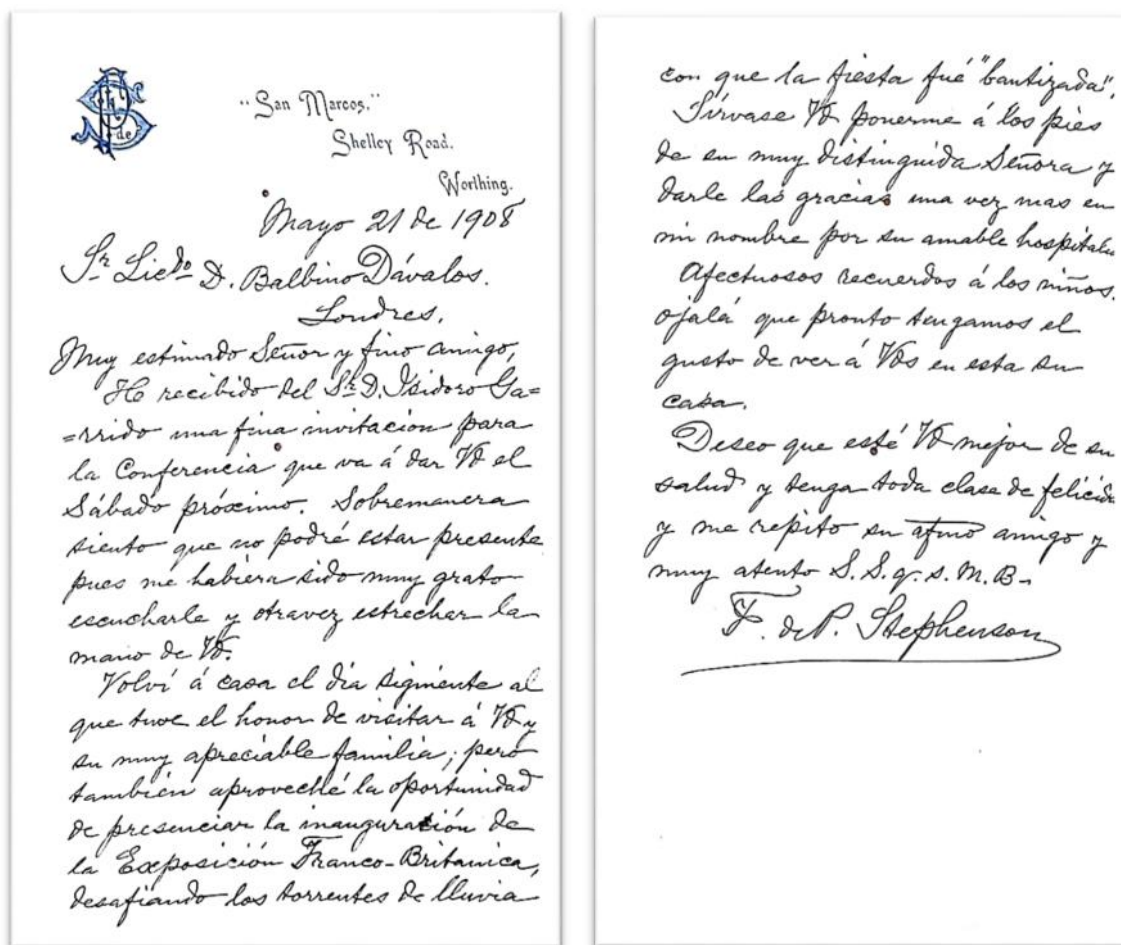 "San Marcos."
Shelley Road.
Worthing.
Mayo 21 de 1908
Sr Licdo D. Balbino Dávalos.
Londres.
Muy estimado Señor y fino amigo,
He recibido del Sr D. Isidoro Ga=
=rrido una fina invitación para
la Conferencia que va á dar Vd el
Sábado próximo. Sobremanera
siento que no podré estar presente
pues me habiera sido muy grato
escucharle y otravez estrechar la
mano de Vd.
Volví á casa el día siguiente al
que tuve el honor de visitar á Vd y
su muy apreciable familia; pero
también aproveché la oportunidad
de presenciar la inauguración de
la Exposición Franco-Britanica,
desafiando los torrentes de lluvia
con que la fiesta fué "bautizada".
Sírvase Vd ponerme á los pies
de su muy distinguida Señora y
darle las gracias una vez mas en
mi nombre por su amable hospitali
Afectuosos recuerdos á los niños.
ojalá que pronto tengamos el
gusto de ver á Vds en esta su
casa.
Deseo que esté Vd mejor de su
salud y tenga toda clase de felicida
y me repito su afmo amigo y
muy atento S. S. q. s. M. B.
F. de P. Stephenson